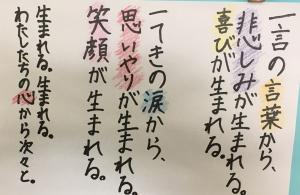 一言の言葉から、
悲しみが生まれる。
喜びが生まれる。
一てきの涙から、
思いやりが生まれる。
笑顔が生まれる。
生まれる。生まれる。
わたしたちの心から次々と。